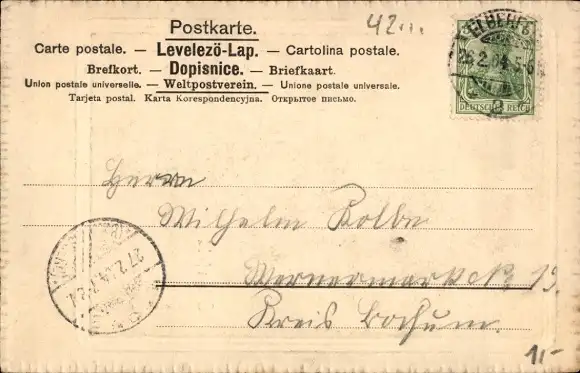 Postkarte.
42...
Carte postale. — Levelező-Lap. — Cartolina postale.
Brefkort. — Dopisnice. — Briefkaart.
Union postale universelle. — Weltpostverein. — Unione postale universale.
Tarjeta postal. Karta Korespondencyjna. Открытое письмо.
DEUTSCHES REICH
Herrn
Wilhelm Kolbe
27.2.04
19.
Kreis Bochum.
11,-